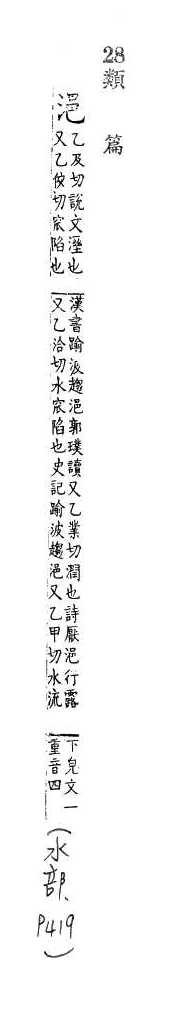 28類篇
浥
乙及切說文溼也
又乙切窊陷也
漢書踰波趨浥郭璞讀又乙業切潤也詩厭浥行露
又乙洽切水窊陷也史記踰波趨浥又乙甲切水流
下皃文一
重音四
(水部、P419)